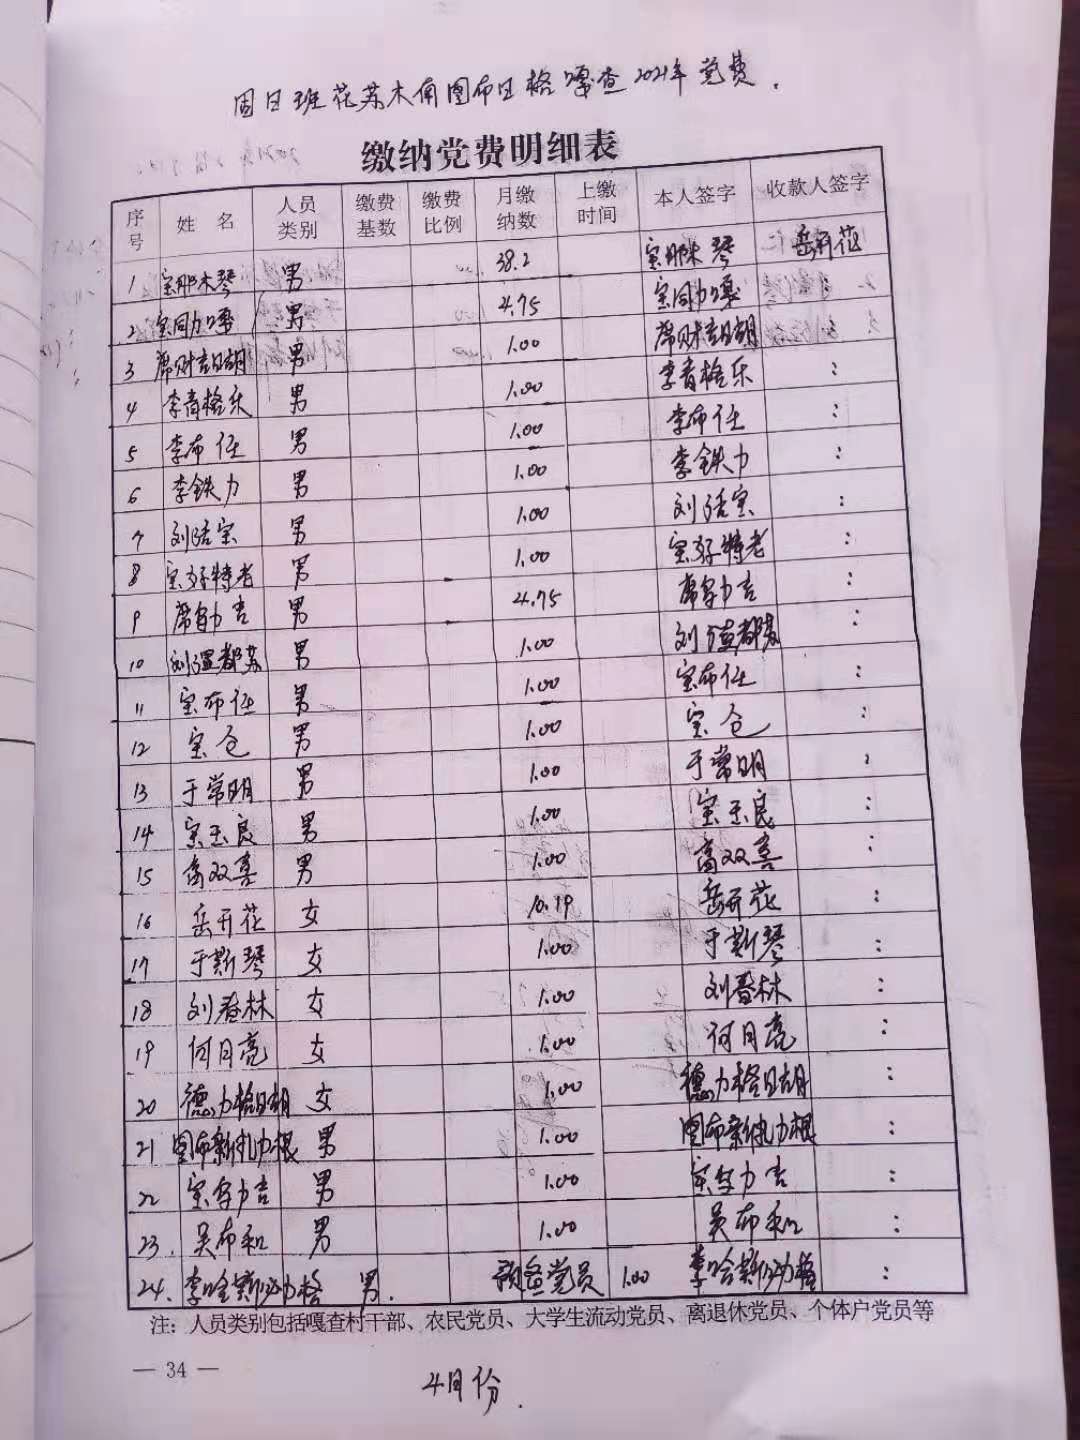 固日班花苏木南图布日格嘎查2021年党费.
缴纳党费明细表
序号 姓 名 人员类别 缴费基数 缴费比例 月缴纳数 上缴时间 本人签字 收款人签字
1 宝那木琴 男 38.2 宝那木琴 岳开花
2 宝同力嘎 男 4.75 宝同力嘎
3 席财吉日胡 男 1.00 席财吉日胡
4 李青格乐 男 1.00 李青格乐 :
5 李布仁 男 1.00 李布仁 :
6 李铁力 男 1.00 李铁力 :
7 刘结宝 男 1.00 刘结宝 :
8 宝好特老 男 1.00 宝好特老 :
9 席努力吉 男 4.75 席努力吉 :
10 刘温都苏 男 1.00 刘温都苏 :
11 宝布仁 男 1.00 宝布仁 :
12 宝仓 男 1.00 宝仓 :
13 于常明 男 1.00 于常明 :
14 宝玉良 男 1.00 宝玉良 :
15 高双喜 男 1.00 高双喜 :
16 岳开花 女 10.19 岳开花 :
17 于斯琴 女 1.00 于斯琴 :
18 刘春林 女 1.00 刘春林 :
19 何月亮 女 1.00 何月亮 :
20 德力格日胡 女 1.00 德力格日胡 :
21 图布新扎力根 男 1.00 图布新扎力根 :
22 宝努力吉 男 1.00 宝努力吉 :
23. 吴布和 男 1.00 吴布和 :
24. 李哈斯 格 男. 预备党员 1.00 李哈斯 格 :
注：人员类别包括嘎查村干部、农民党员、大学生流动党员、离退休党员、个体户党员等
— 34 —
4月份.